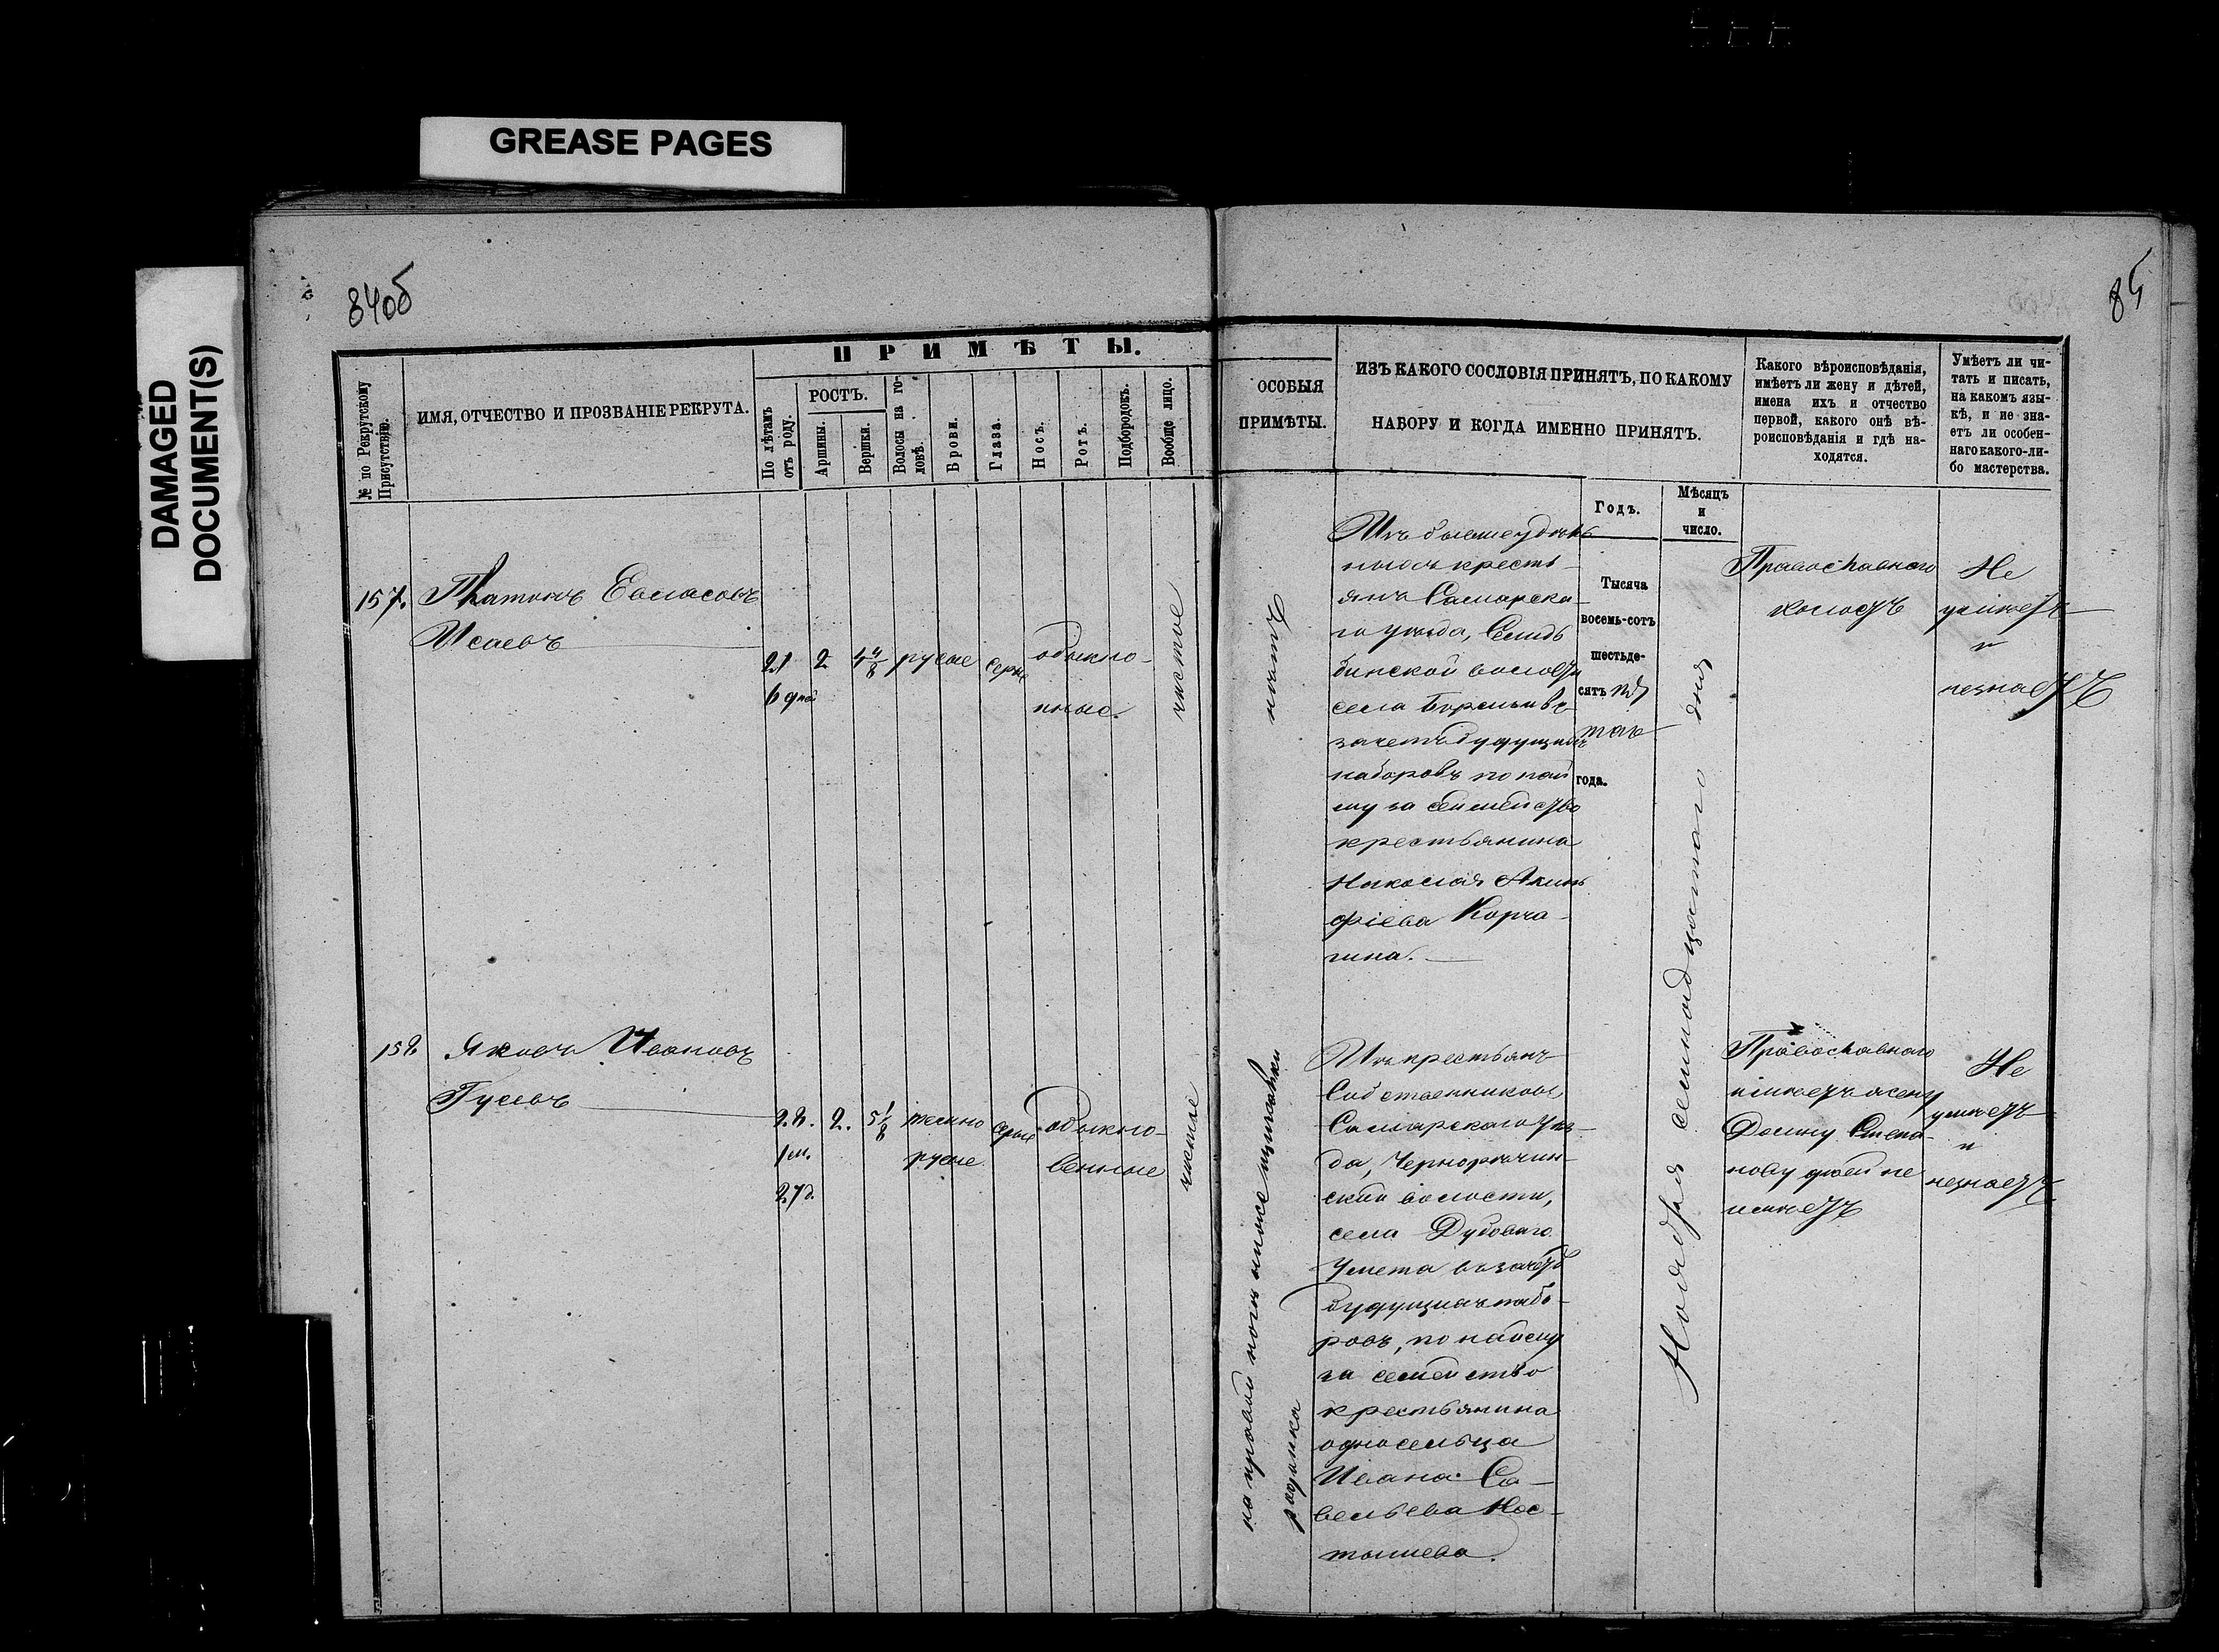 GREASE PAGES
DAMAGED
DOCUMENT(S)
84об
85
ПРИМѢТЫ.
№ по Рекрутскому
Присутствію.
ИМЯ, ОТЧЕСТВО И ПРОЗВАНІЕ РЕКРУТА.
По лѣтамъ
отъ роду.
РОСТЪ.
Аршины.
Вершки.
Волосы на го-
ловѣ.
Брови.
Глаза.
Носъ.
Ротъ.
Подбородокъ.
Вообще лицо.
ОСОБЫЯ
ПРИМѢТЫ.
ИЗЪ КАКОГО СОСЛОВІЯ ПРИНЯТЪ, ПО КАКОМУ
НАБОРУ И КОГДА ИМЕННО ПРИНЯТЪ.
Годъ.
Мѣсяцъ
и
число.
Какого вѣроисповѣданія,
имѣетъ ли жену и дѣтей,
имена ихъ и отчество
первой, какого онѣ вѣ-
роисповѣданія и гдѣ на-
ходятся.
Умѣетъ ли чи-
тать и писать,
на какомъ язы-
кѣ, и не зна-
етъ ли особен-
наго какого-ли-
бо мастерства.
157. Платонъ Евласовъ
Исаевъ
21
6 дней
2
4 4/8
русые
серые
обыкно-
чистое
нѣтъ
Изъ бывше удѣль
ныхъ кресть-
янъ Самарска-
го уѣзда,
бинской волости
села
зачетъ будущихъ
наборовъ по най
му за семейство
крестьянина
Николая Акин
фіева Корча-
гина.
Тысяча
восемь-сотъ
шестьде-
сятъ пя
таго
года.
Ноября семнадцатаго дня
Православнаго
холостъ
Не
умѣетъ
и
незнаетъ
158. Яковъ Ивановъ
Гусевъ
28.
1 м.
27 д.
2.
5 1/8
темно
русые
серые
обыкно-
венные
чистые
на правой ноге ниже щиколотки
родинка
Изъ крестьянъ
Собственниковъ,
Самарскаго уѣз-
да, Чернорѣчин-
ской волости,
села Дубоваго
Умета въ зачетъ
будущихъ набо-
ровъ, по найму
за семейство
крестьянина
односельца
Ивана Са-
вельева Кос-
тышева.
Православнаго
имѣетъ жену
Домну Степа-
нову детей не
имѣетъ
Не
умѣетъ
и
незнаетъ